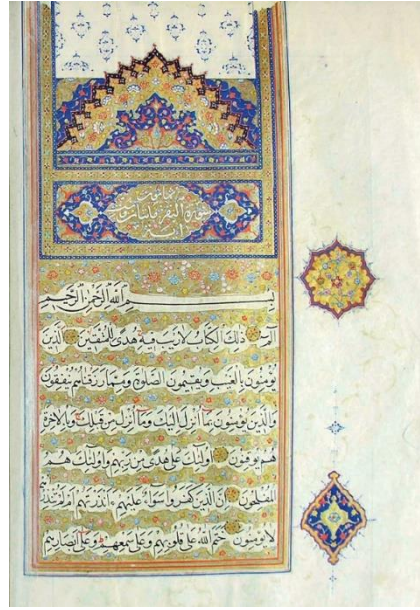 سورة البقرة مائتان و
بسم الله الرحمن الرحيم
الم ذلك الكتاب لا ريب فيه هدى للمتقين الذين
يؤمنون بالغيب ويقيمون الصلوة ومما رزقناهم ينفقون
والذين يؤمنون بما أنزل إليك وما أنزل من قبلك وبالآخرة
هم يوقنون أولئك على هدى من ربهم وأولئك هم
المفلحون إن الذين كفروا سواء عليهم ءأنذرتهم أم لم تنذرهم
لا يؤمنون ختم الله على قلوبهم وعلى سمعهم وعلى أبصارهم